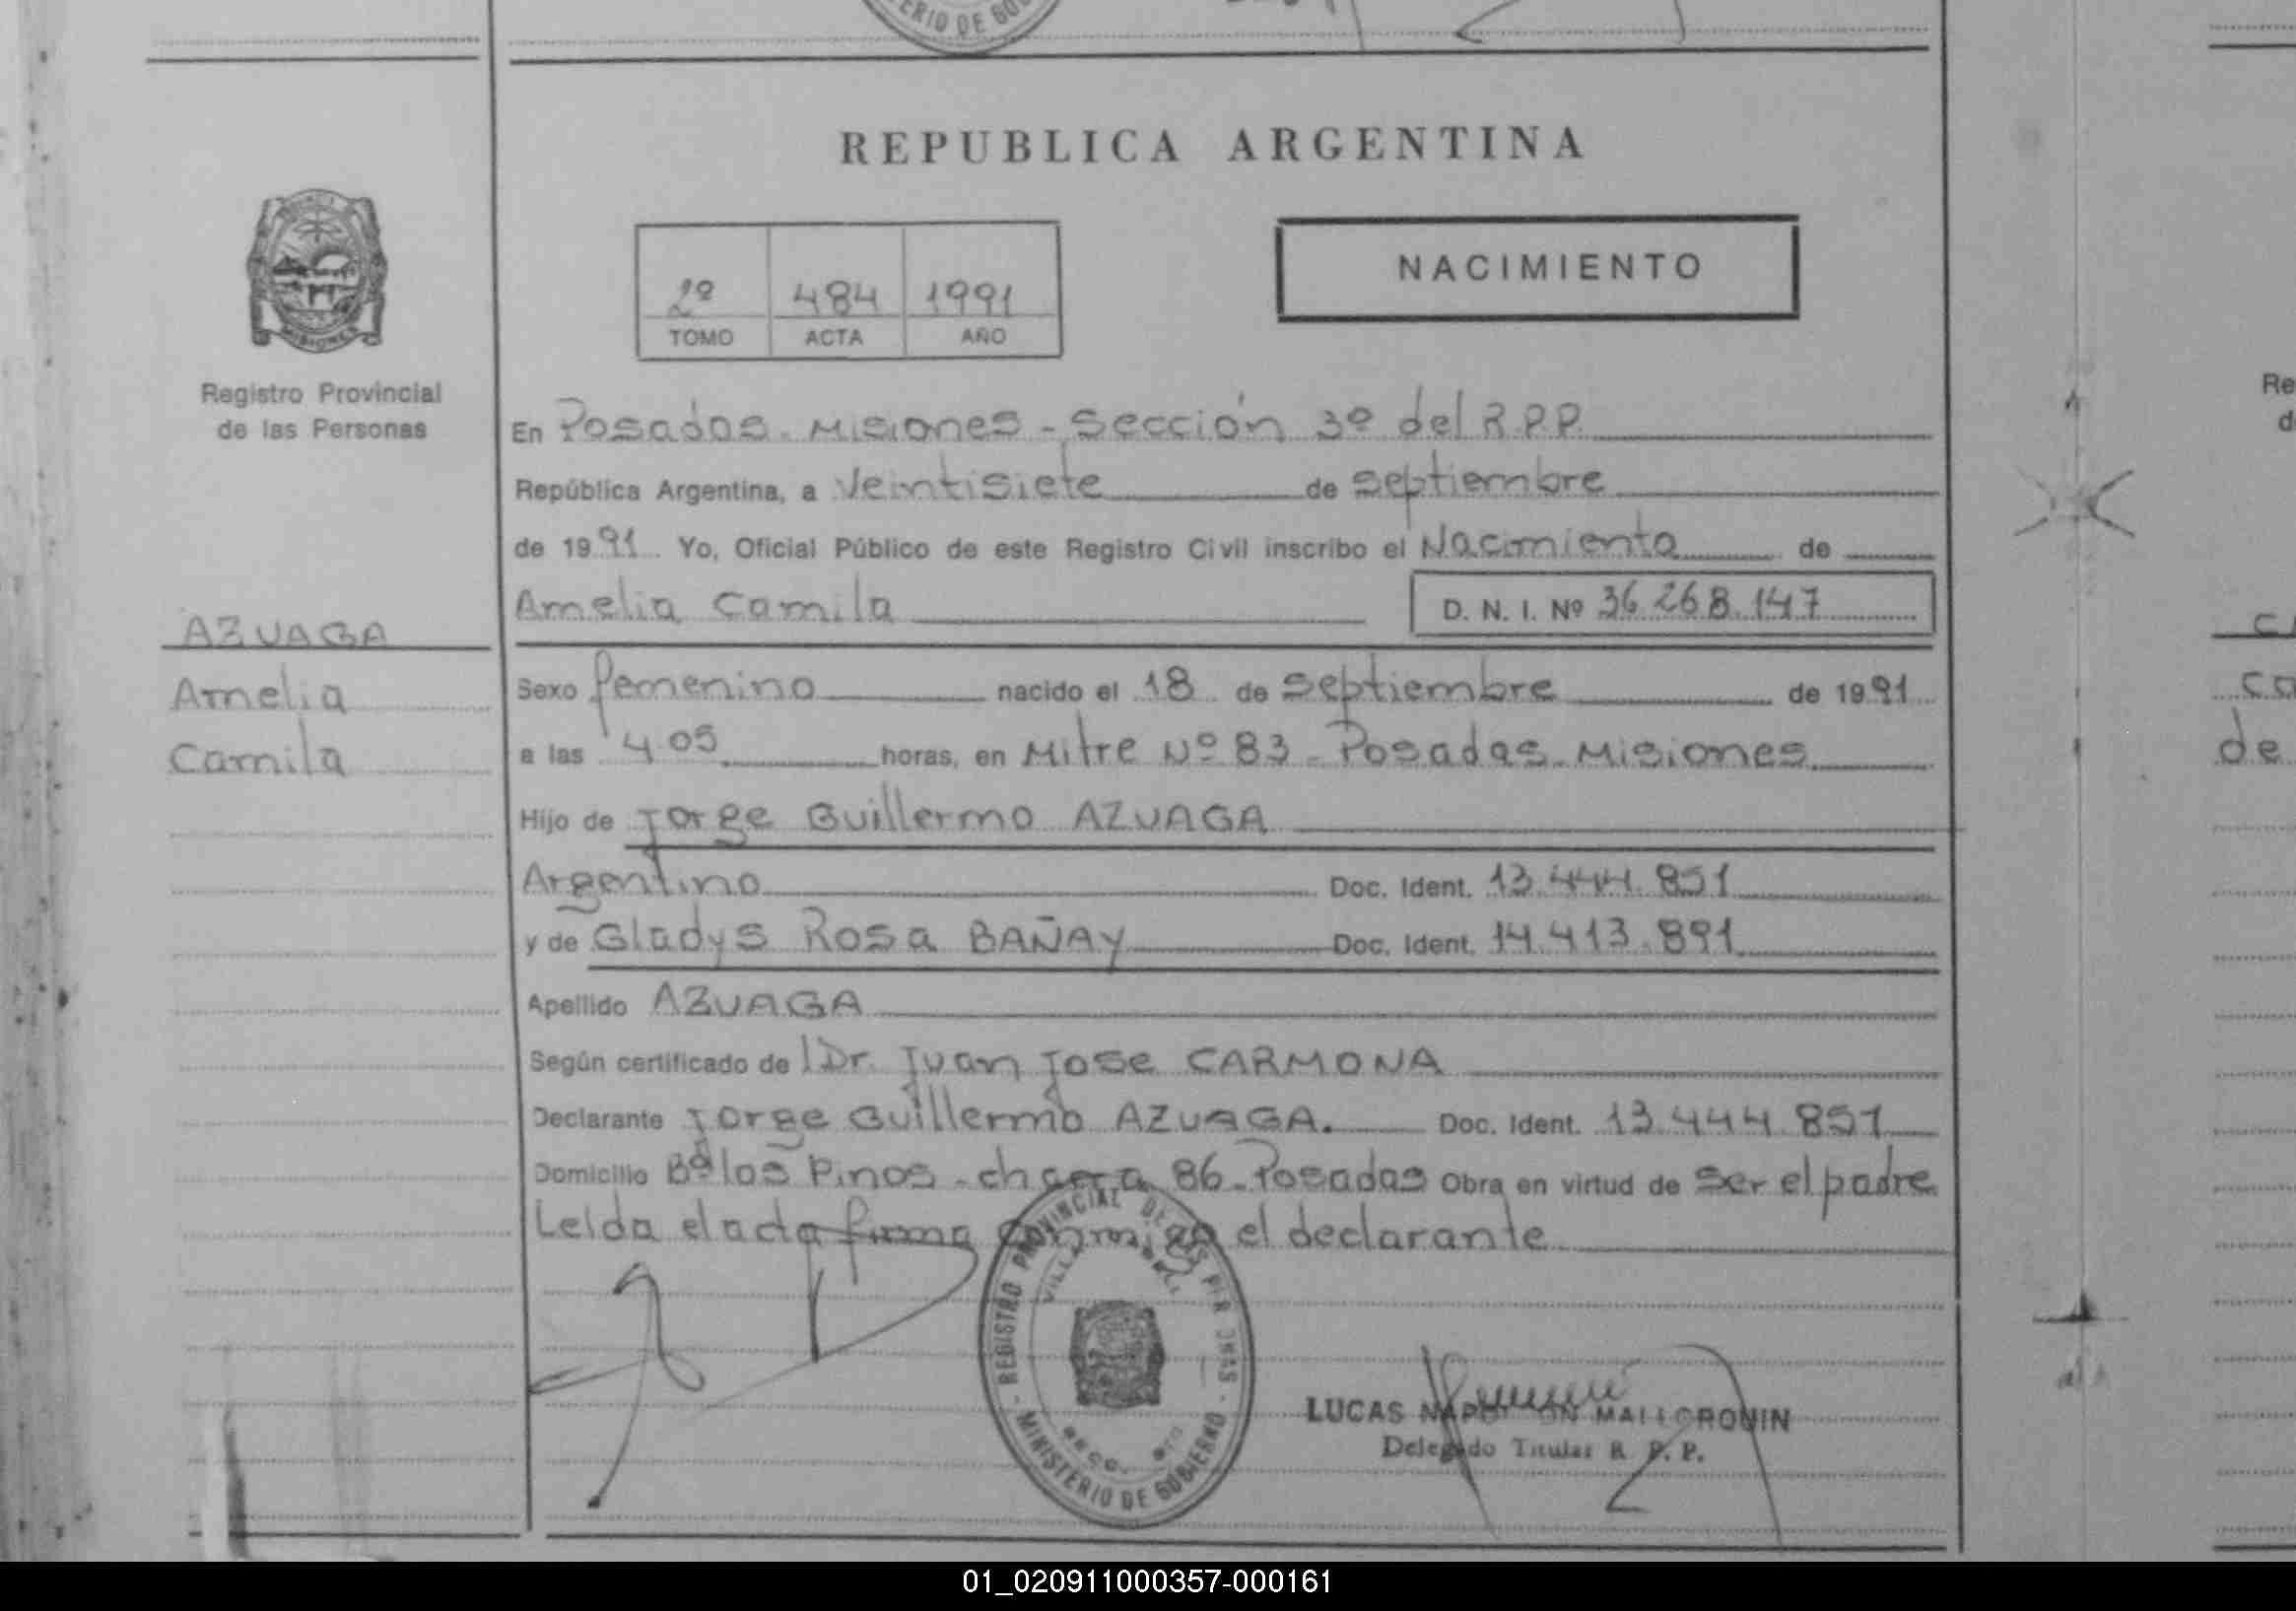 ERIO DE GO
REPUBLICA ARGENTINA
MISIONES
Registro Provincial
de las Personas
2º 484 1991
TOMO ACTA AÑO
NACIMIENTO
En Posadas - Misiones - Sección 3º del R.P.P.
República Argentina, a Veintisiete de septiembre
de 1991. Yo, Oficial Público de este Registro Civil inscribo el Nacimiento de
Amelia Camila D. N. I. Nº 36.268.147
AZUAGA
Amelia
Camila
Sexo femenino nacido el 18 de septiembre de 1991
a las 4.05 horas, en Mitre Nº 83 - Posadas - Misiones
Hijo de Jorge Guillermo AZUAGA
Argentino Doc. Ident. 13.444.851
y de Gladys Rosa BAÑAY Doc. Ident. 14.413.891
Apellido AZUAGA
Según certificado de l Dr. Juan Jose CARMONA
Declarante Jorge Guillermo AZUAGA. Doc. Ident. 13.444.851
Domicilio Bº los Pinos - chacra 86 - Posadas Obra en virtud de ser el padre
Leida el acta firma conmigo el declarante
REGISTRO PROVINCIAL DE LAS PERSONAS
MINISTERIO DE GOBIERNO
LUCAS NAPOLEON MALLORQUIN
Delegado Titular R. P. P.
Re
de
01_020911000357-000161